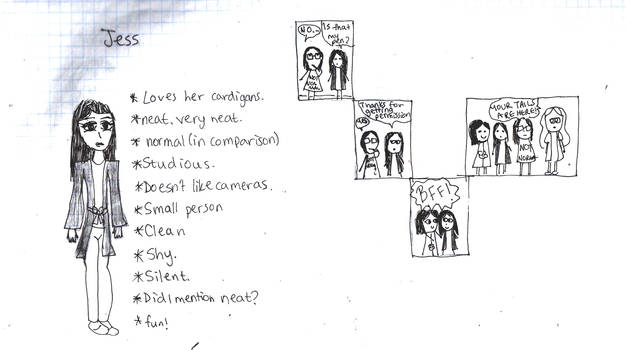 Jess
* Loves her cardigans.
* neat, very neat.
* normal (in comparison)
* Studious.
* Doesn't like cameras.
* Small person
* Clean
* Shy.
* Silent.
* Did I mention neat?
* fun!
NO..
Is that
my
pen?
NOT
Thanks for
getting
permission
YOUR TAILS
ARE HERE!!
NOT
NORMAL
BFF!